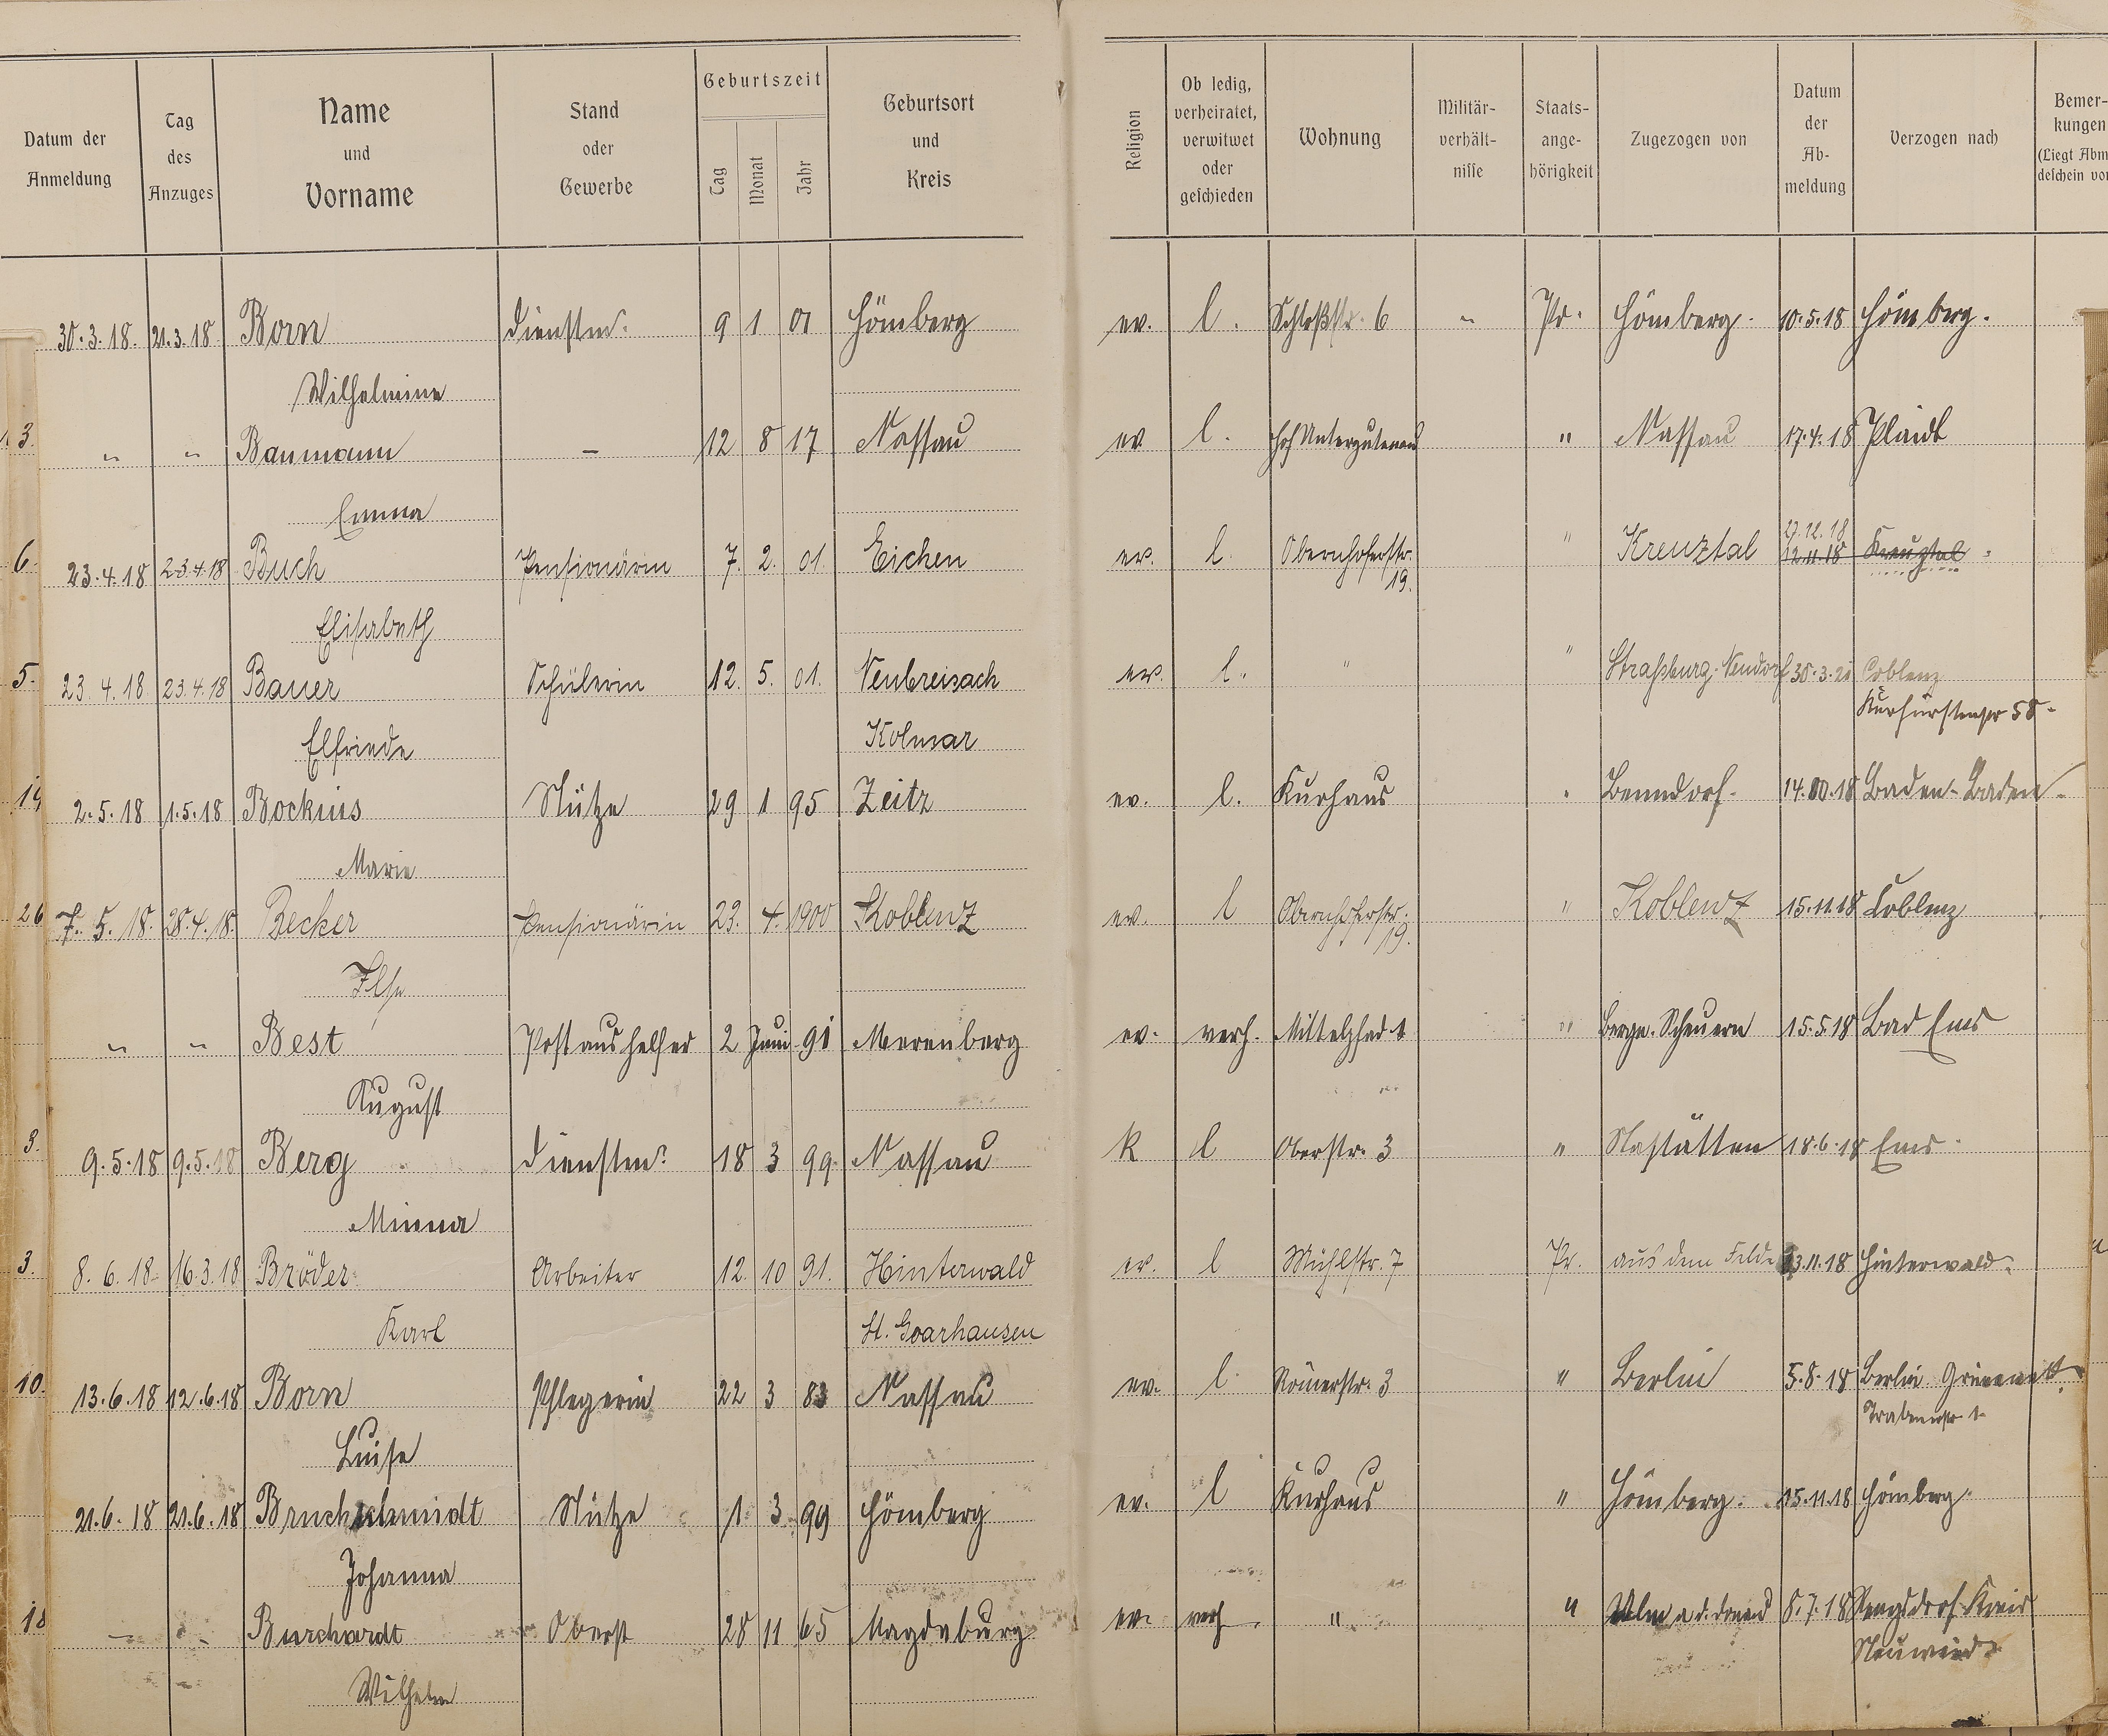 Datum der Anmeldung | Tag des Anzuges | Name und Vorname | Stand oder Gewerbe | Geburtszeit Tag Monat Jahr | Geburtsort und Kreis | Religion | Ob ledig, verheiratet, verwitwet oder geschieden | Wohnung | Militär-verhält-nisse | Staats-ange-hörigkeit | Zugezogen von | Datum der Ab-meldung | Verzogen nach | Bemer-kungen (Liegt Abm deschein vor
30.3.18. 21.3.18 Born Dienstm. 9 1 01 Hömberg ev. l. Schloßstr. 6 " Pr. Hömberg. 10.5.18 Hömberg.
Wilhelmine
13. " " Baumann – 12 8 17 Nassau ev l. Hof Untergutenau " Nassau 17.4.18 Plaidt
Emma
27.12.18
6. 23.4.18 23.4.18 Buch Pensionärin 7. 2. 01. Eichen ev. l. Obernhoferstr. " Kreuztal 12.11.18 Kreuztal
19.
Elisabeth
5. 23.4.18 23.4.18 Bauer Schülerin 12. 5. 01. Neubreisach ev. l. " " Straßburg-Neudorf 30.3.20 Coblenz
Kurfürstenstr 58.
Elfriede Kolmar
14 2.5.18 1.5.18 Bockius Stütze 29 1 95 Zeitz ev. l. Kurhaus " Benndorf. 14.10.18 Baden-Baden
Marie
26 7.5.18. 28.4.18. Becker Pensionärin 23. 4. 1900 Koblenz ev. l Obernhoferstr. " Koblenz 15.11.18 Coblenz
19.
Ilse
" " Best Postaushelfer 2 Juni 91 Merenberg ev. verh. Mittelpfad 1 " Bergn. Scheuern 15.5.18 Bad Ems
August
3. 9.5.18 9.5.18 Berg Dienstm. 18 3 99. Nassau k l Oberstr. 3 " Nastätten 18.6.18 Ems.
Minna
3. 8.6.18. 16.3.18 Bröder Arbeiter 12. 10 91. Hinterwald ev. l Mühlstr. 7 Pr. aus dem Felde 13.11.18 Hinterwald.
Karl St. Goarhausen
10. 13.6.18 12.6.18 Born Pflegerin 22 3 83 Nassau ev. l. Römerstr. 3 " Berlin 5.8.18 Berlin
Luise
21.6.18 21.6.18 Bruchschmidt Stütze 1. 3. 99 Hömberg ev. l Kurhaus " Hömberg. 15.11.18 Hömberg.
Johanna
18 " " Burchardt Oberst 28 11 65 Magdeburg ev. verh. " " Ulm a d. Donau 8.7.18 Rengsdorf Kreis
Neuwied.
" Wilhelm